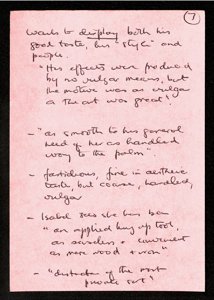 7
wants to display both his
good taste, his "style" and
people.
"His effects were produced
by no vulgar means, but
the motive was as vulgar
as the art was great".
- "as smooth to his general
need of her as handled
ivory to the palm".
- fastidious, fine in aesthetic
taste, but coarse, handled,
vulgar
- Isabel sees she has been
"an applied hung up tool,
as senseless & convenient
as mere wood & iron"
- "of the most